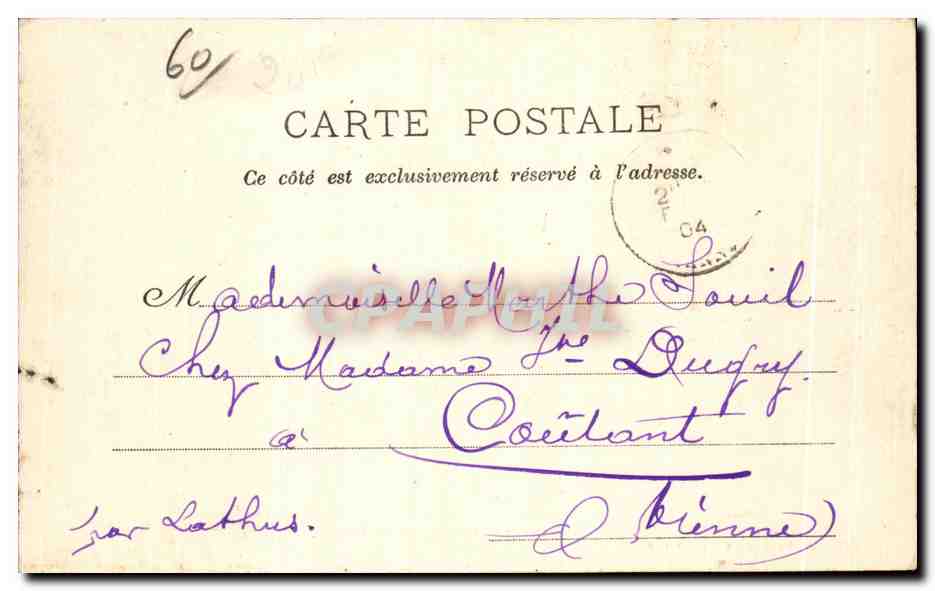 60
CARTE POSTALE
Ce côté est exclusivement réservé à l'adresse.
04
Mademoiselle Marthe Souil
CPAPHIL
Chez Madame Vve Dugry.
à Coûtant
par Lathus.
(Vienne)